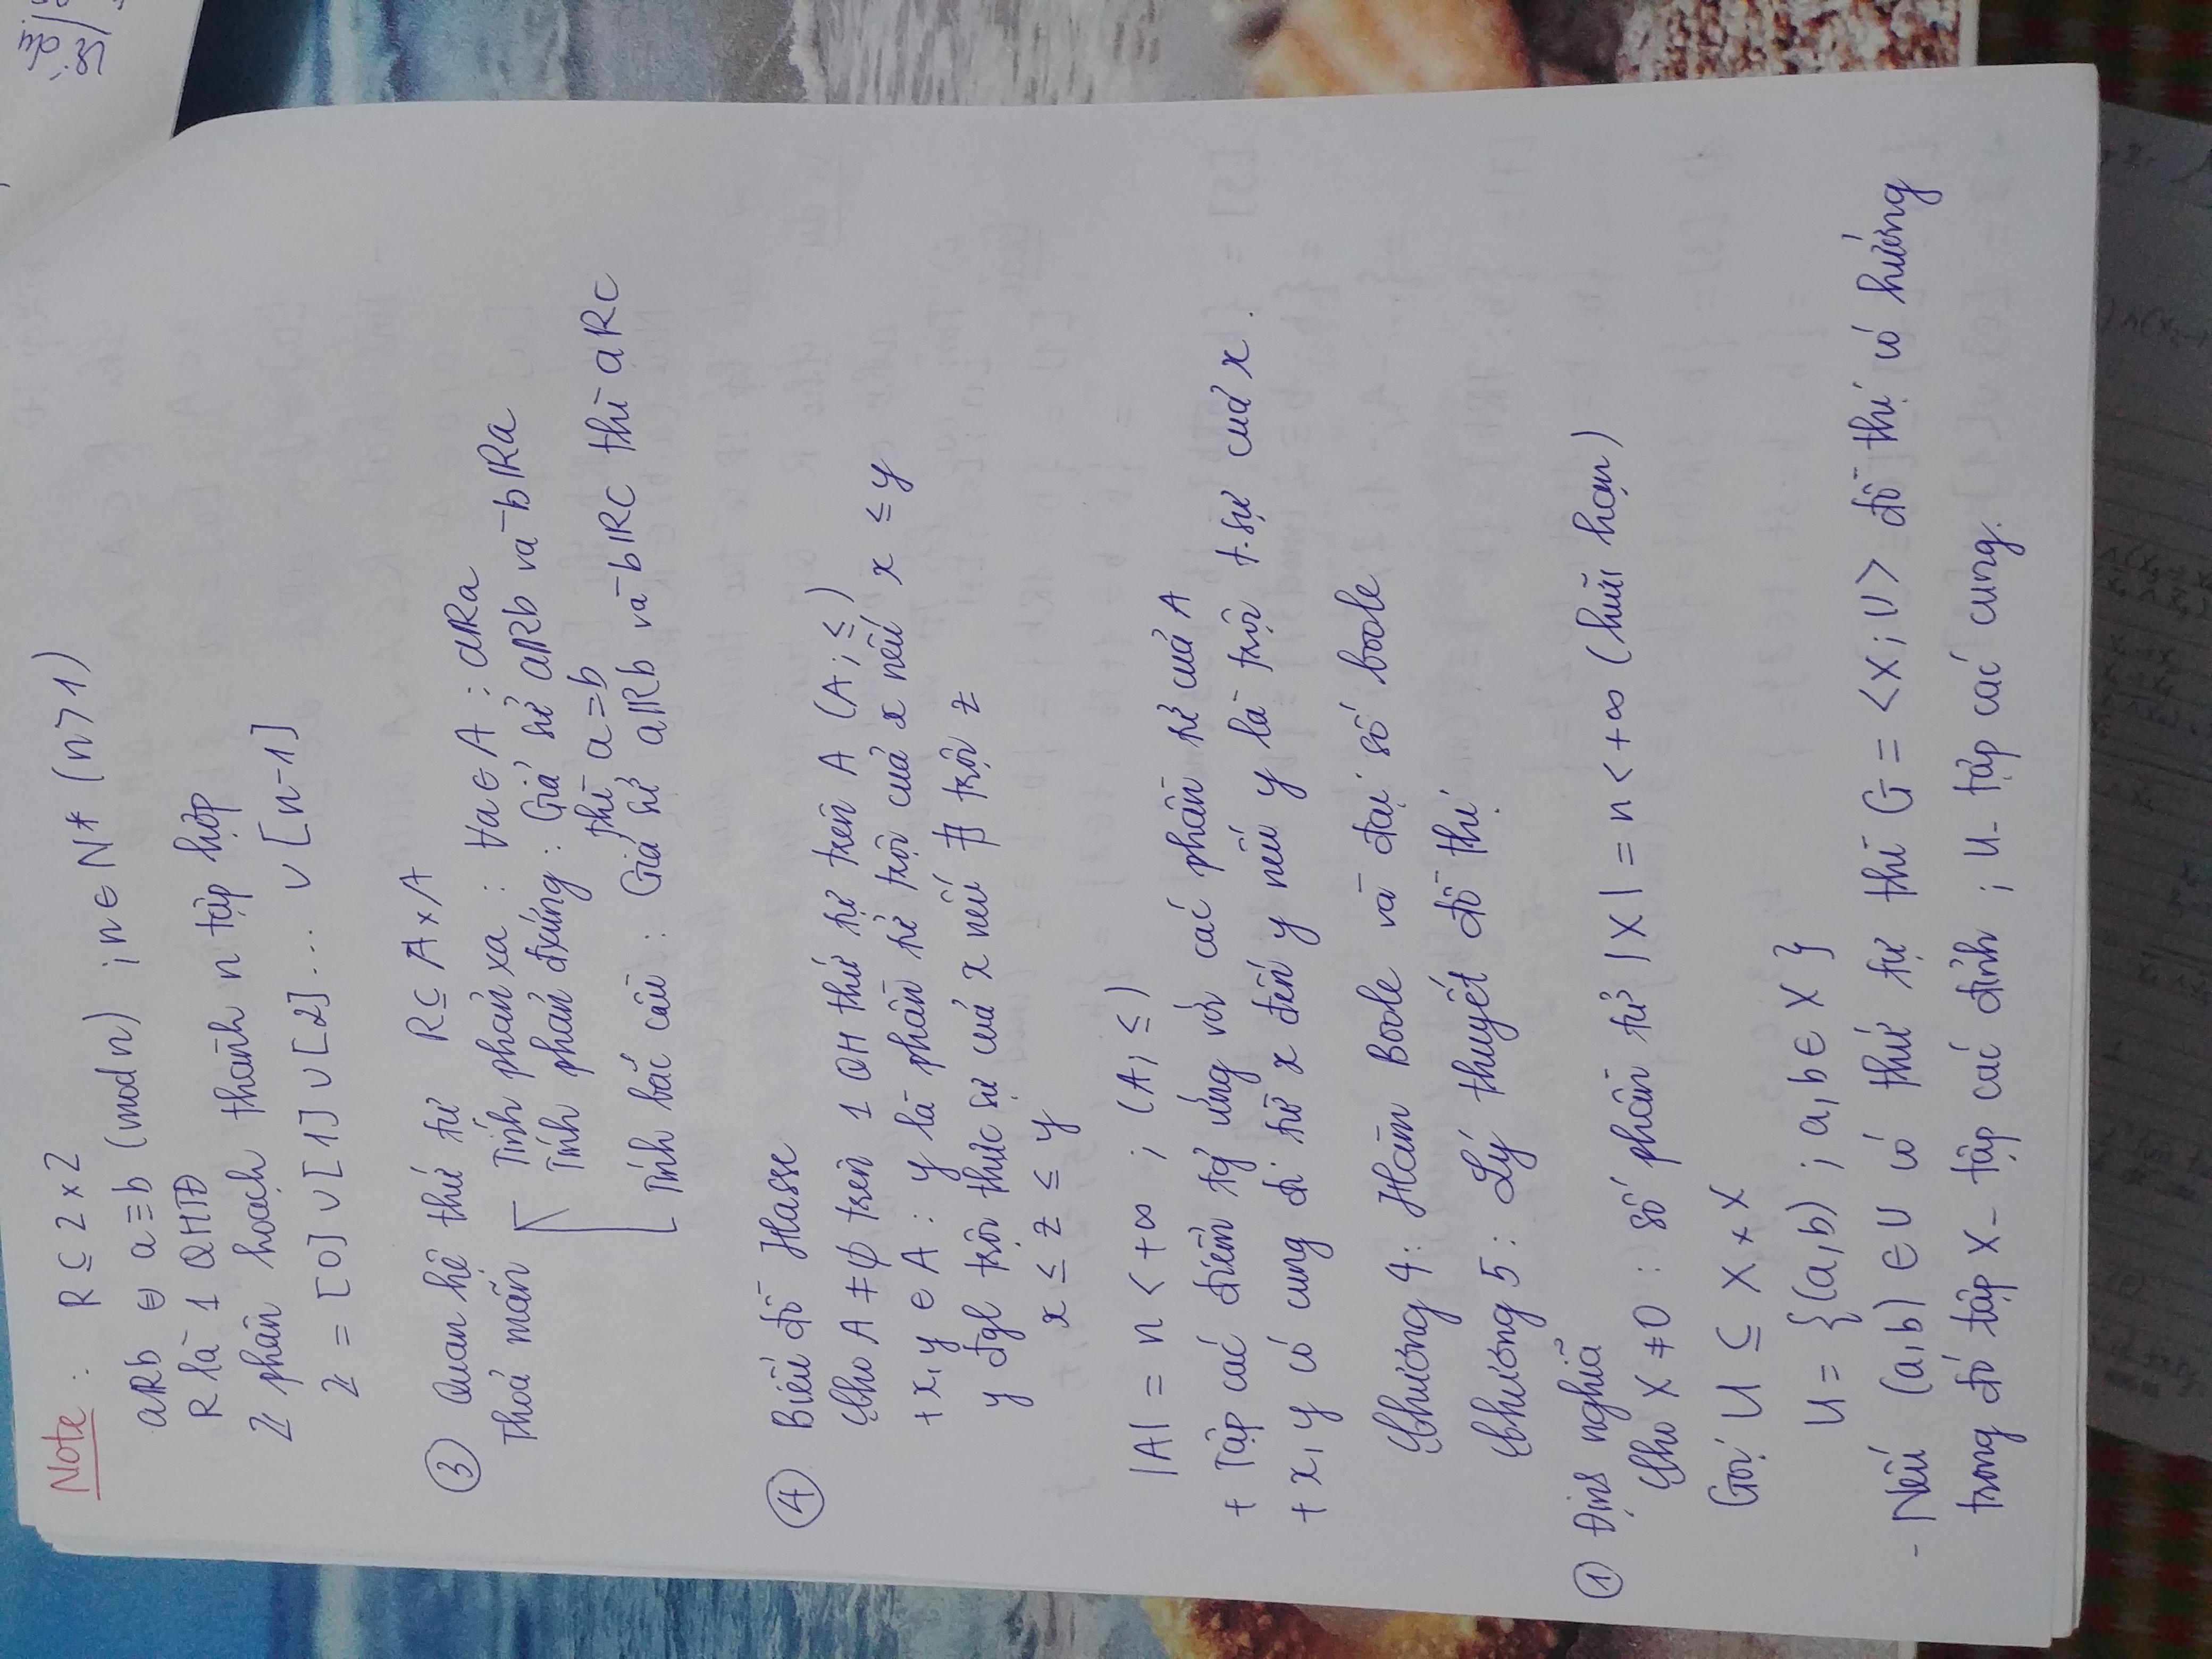 Note : R ⊆ Z × Z
aRb ⇔ a ≡ b (mod n) ; n ∈ N* (n > 1)
R là 1 QHTĐ
Z phân hoạch thành n tập hợp
Z = [0] ∪ [1] ∪ [2] ... ∪ [n-1]
③ Quan hệ thứ tự R ⊆ A × A
Thoả mãn - Tính phản xạ : ∀a ∈ A : aRa
Tính phản đxứng : Giả sử aRb và bRa
thì a = b
Tính bắc cầu : Giả sử aRb và bRc thì aRc
④ Biểu đồ Hasse
Cho A ≠ ∅ trên 1 QH thứ tự trên A (A; ≤)
+ x, y ∈ A : y là phần tử trội của x nếu x ≤ y
y đgl trội thực sự của x nếu ∄ trội z
x ≤ z ≤ y
|A| = n < +∞ ; (A; ≤)
+ Tập các điểm tg ứng với các phần tử của A
+ x, y có cung đi từ x đến y nếu y là trội t.sự của x .
Chương 4 : Hàm Boole và đại số boole
Chương 5 : Lý thuyết đồ thị
① Định nghĩa
Cho X ≠ 0 : số phần tử |X| = n < +∞ (hữu hạn)
Gọi U ⊆ X × X
U = {(a,b) ; a,b ∈ X }
- Nếu (a,b) ∈ U có thứ tự thì G = <X; U> đồ thị có hướng
trong đó tập X - tập các đỉnh ; U - tập các cung.
Ví dụ